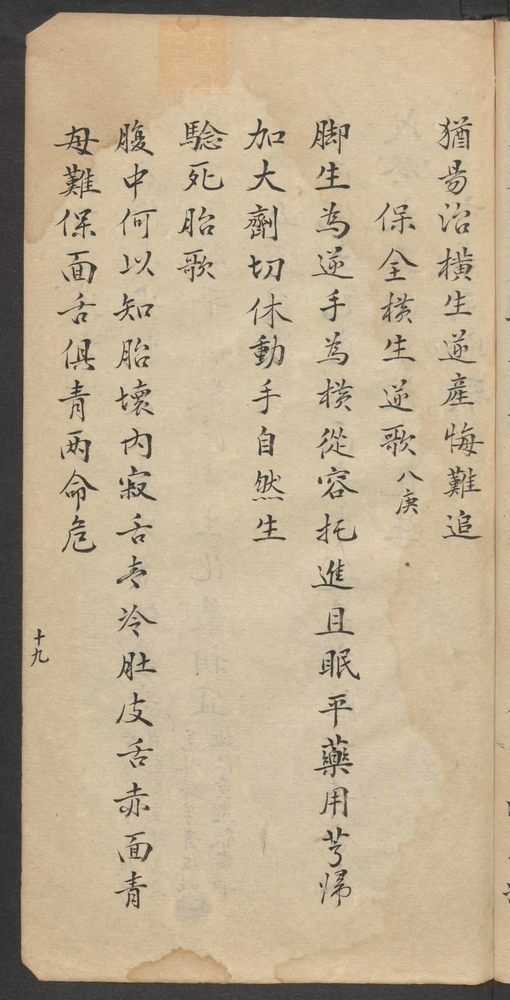 猶易治橫生逆產悔難追
保全橫生逆歌八庚
脚生為逆手為橫從容托進且眠平藥用芎歸
加大劑切休動手自然生
騐死胎歌
腹中何以知胎壞內寂舌青冷肚皮舌赤面青
母難保面舌俱青兩命危
十九